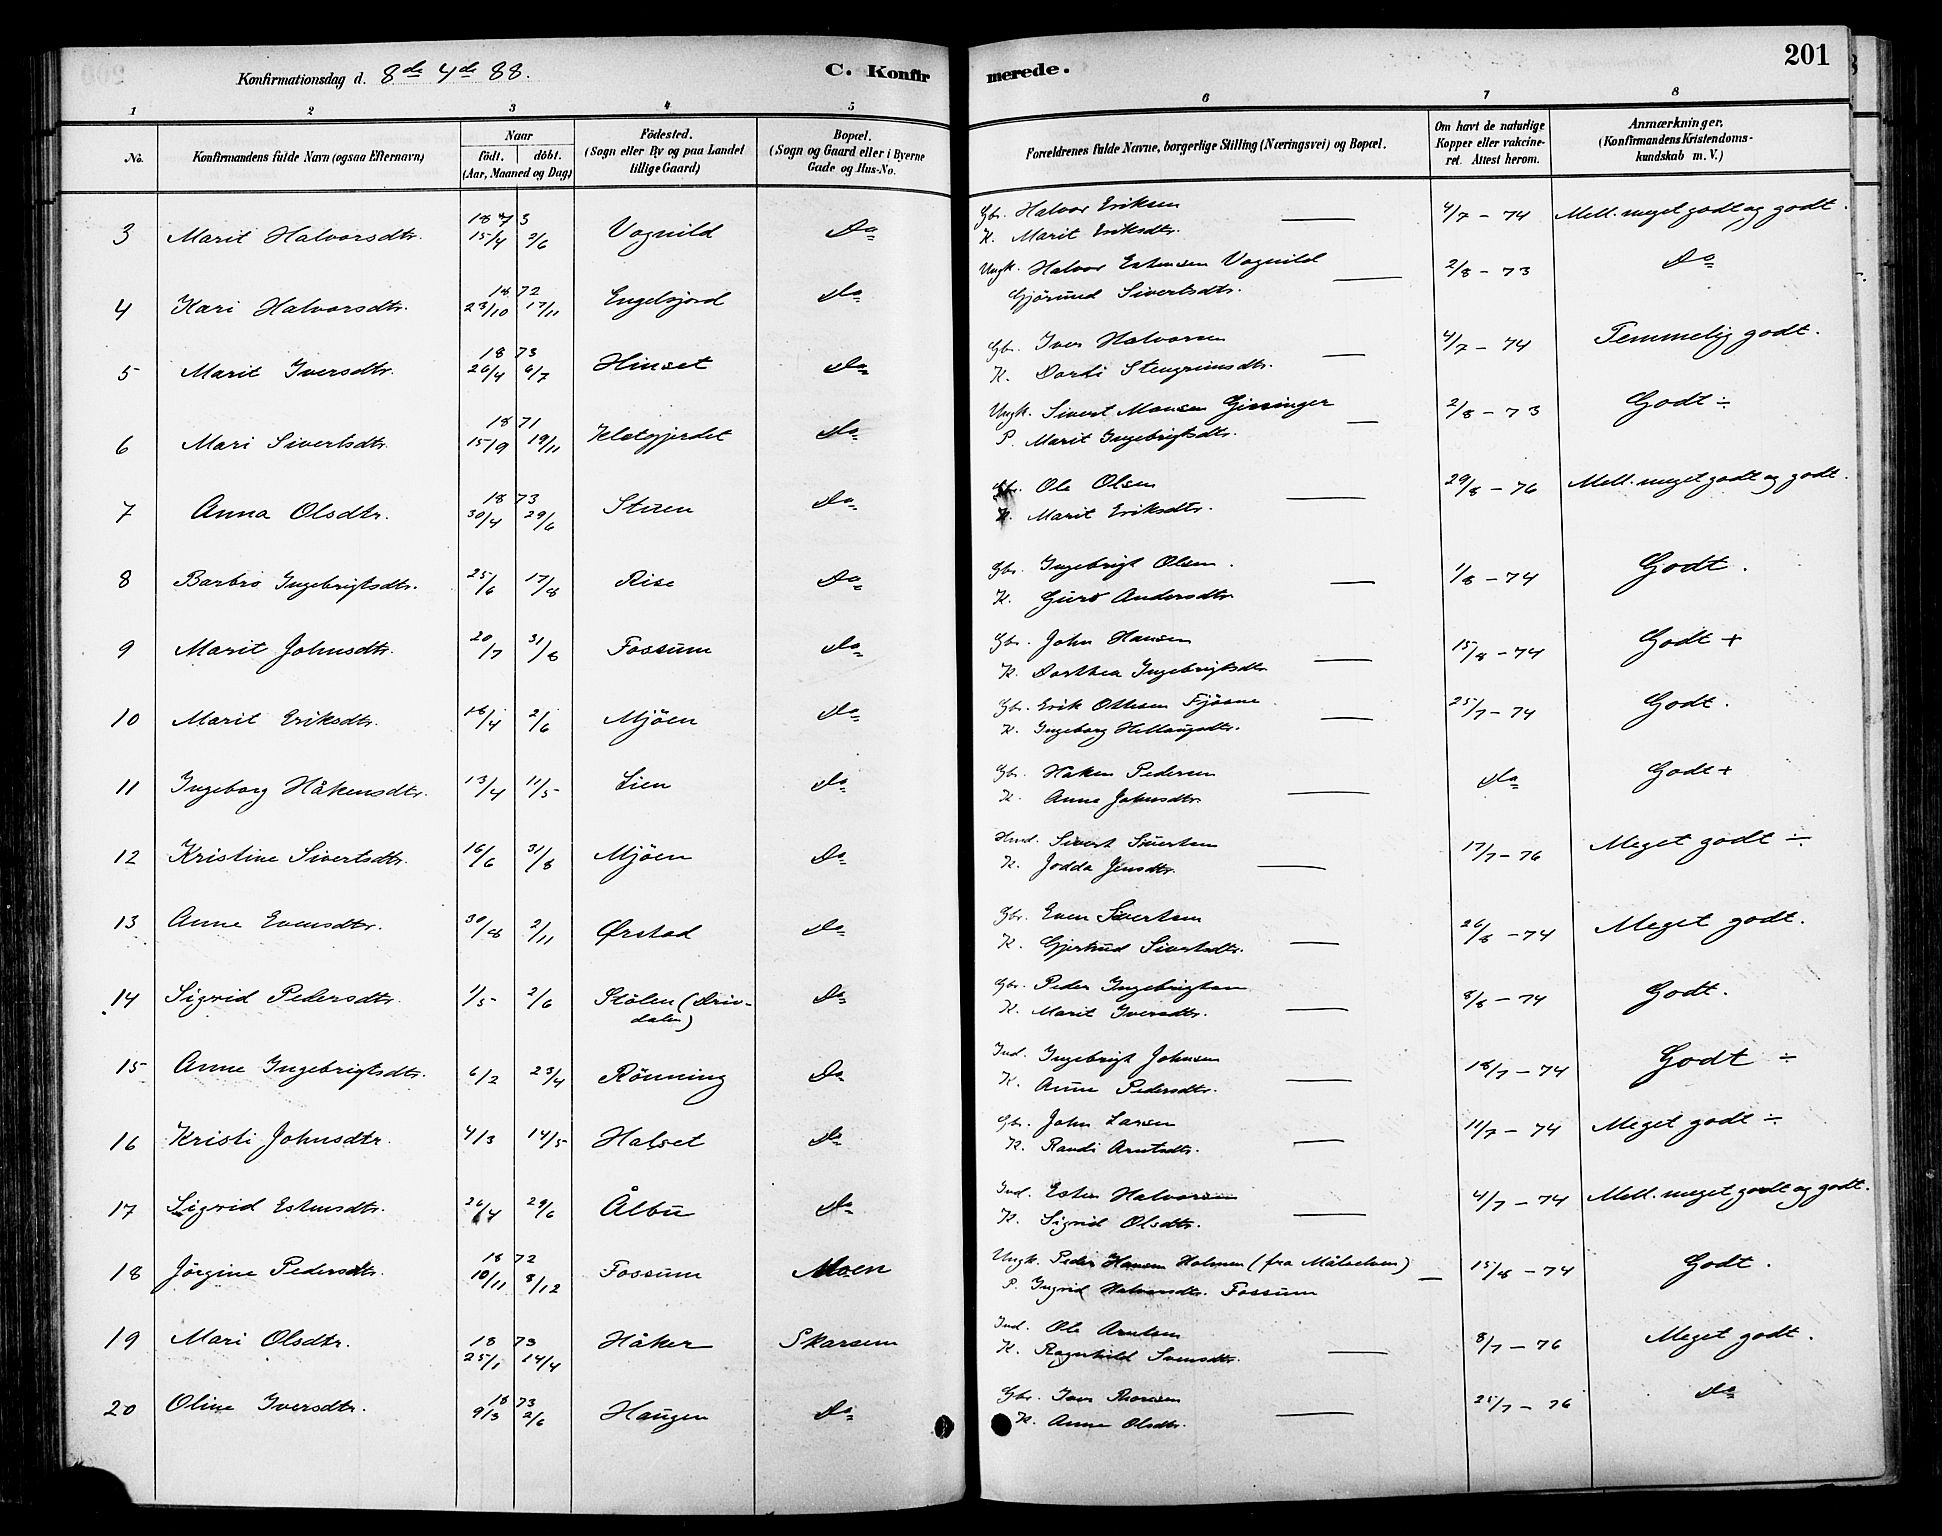 201
Konfirmationsdag d. 8de 4de 88. C. Konfirmerede.
1 2 3 4 5 6 7 8
No. Konfirmandens fulde Navn (ogsaa Efternavn) Naar födt. döbt. (Aar, Maaned og Dag) Födested. (Sogn eller By og paa Landet tillige Gaard) Bopæl. (Sogn og Gaard eller i Byerne Gade og Hus-No. Forældrenes fulde Navne, borgerlige Stilling (Næringsvei) og Bopæl. Om havt de naturlige Kopper eller vakcineret. Attest herom. Anmærkninger. (Konfirmandens Kristendomskundskab m. V.)
3 Marit Halvorsdtr. 1873 15/4 2/6 Vognild Do Gbr. Halvor Eriksen — 4/7 - 74 Mell. meget godt og godt.
K. Marit Eriksdtr.
4 Kari Halvorsdtr. 1872 23/10 17/11 Engelsjord Do Ungk. Halvor Estensen Vognild — 2/8 - 73 Do
Gjörund Sivertsdtr.
5 Marit Iversdtr. 1873 26/4 6/7 Hinset Do Gbr. Iver Halvorsen — 4/7 - 74 Temmelig godt.
K. Dordi Stengrimsdtr.
6 Mari Sivertsdtr. 1871 15/9 19/11 Kletgjerdet Do Ungk. Sivert Monsen Gissinger — 2/8 - 73 Godt ÷
P. Marit Ingebrigtsdtr.
7 Anna Olsdtr. 1873 30/4 29/6 Stuen Do Gbr. Ole Olsen — 29/8 - 76 Mell. meget godt og godt.
K. Marit Eriksdtr.
8 Barbro Ingebrigtsdtr. 25/6 17/8 Rise Do Gbr. Ingebrigt Olsen. — 1/8 - 74 Godt.
K. Guro Andersdtr.
9 Marit Johnsdtr. 20/7 31/8 Fossum Do Gbr. John Hansen — 15/8 - 74 Godt +
K. Dorthea Ingebrigtsdtr.
10 Marit Eriksdtr. 18/4 2/6 Mjöen Do Gbr. Erik Ottesen Fjösne — 25/7 - 74 Godt.
K. Ingeborg Hellaugsdtr.
11 Ingeborg Håkensdtr. 13/4 11/5 Lien Do Gbr. Håken Pedersen — Do Godt +
K. Anne Johnsdtr.
12 Kristine Sivertsdtr. 16/6 31/8 Mjöen Do Hmd. Sivert Sivertsen — 17/7 - 76 Meget godt ÷
K. Jodda Jensdtr.
13 Anne Evensdtr. 30/8 2/11 Ørstad Do Gbr. Even Sivertsen — 26/8 - 74 Meget godt.
K. Gjertrud Sivertsdtr.
14 Sigrid Pedersdtr. 1/5 2/6 Stölen (Drivdalen) Do Gbr. Peder Ingebrigtsen — 8/8 - 74 Godt.
K. Marit Iversdtr.
15 Anne Ingebrigtsdtr. 6/2 23/4 Rönning Do Ind. Ingebrigt Johnsen — 18/7 - 74 Godt ÷
K. Anne Pedersdtr.
16 Kristi Johnsdtr. 4/3 14/5 Halset Do Gbr. John Larsen — 11/7 - 74 Meget godt ÷
K. Randi Arntsdtr.
17 Sigrid Estensdtr. 26/4 29/6 Ålbu Do Ind. Esten Halvorsen — 4/7 - 74 Mell. meget godt og godt.
K. Sigrid Olsdtr.
18 Jörgine Pedersdtr. 1872 10/11 8/12 Fossum Moen Ungk. Peder Hansen Holmen (fra Målselven) — 15/8 - 74 Godt.
P. Ingrid Halvorsdtr. Fossum
19 Mari Olsdtr. 1873 25/1 14/4 Håker Skarsem Ind. Ole Arntsen — 8/7 - 76 Meget godt.
K. Ragnhild Svensdtr.
20 Oline Iversdtr. 1873 9/3 2/6 Haugen Do Gbr. Iver Thoresen — 25/7 - 76 Do
K. Anne Olsdtr.